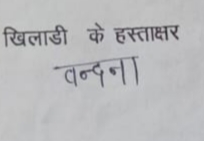 खिलाडी के हस्ताक्षर
वन्दना